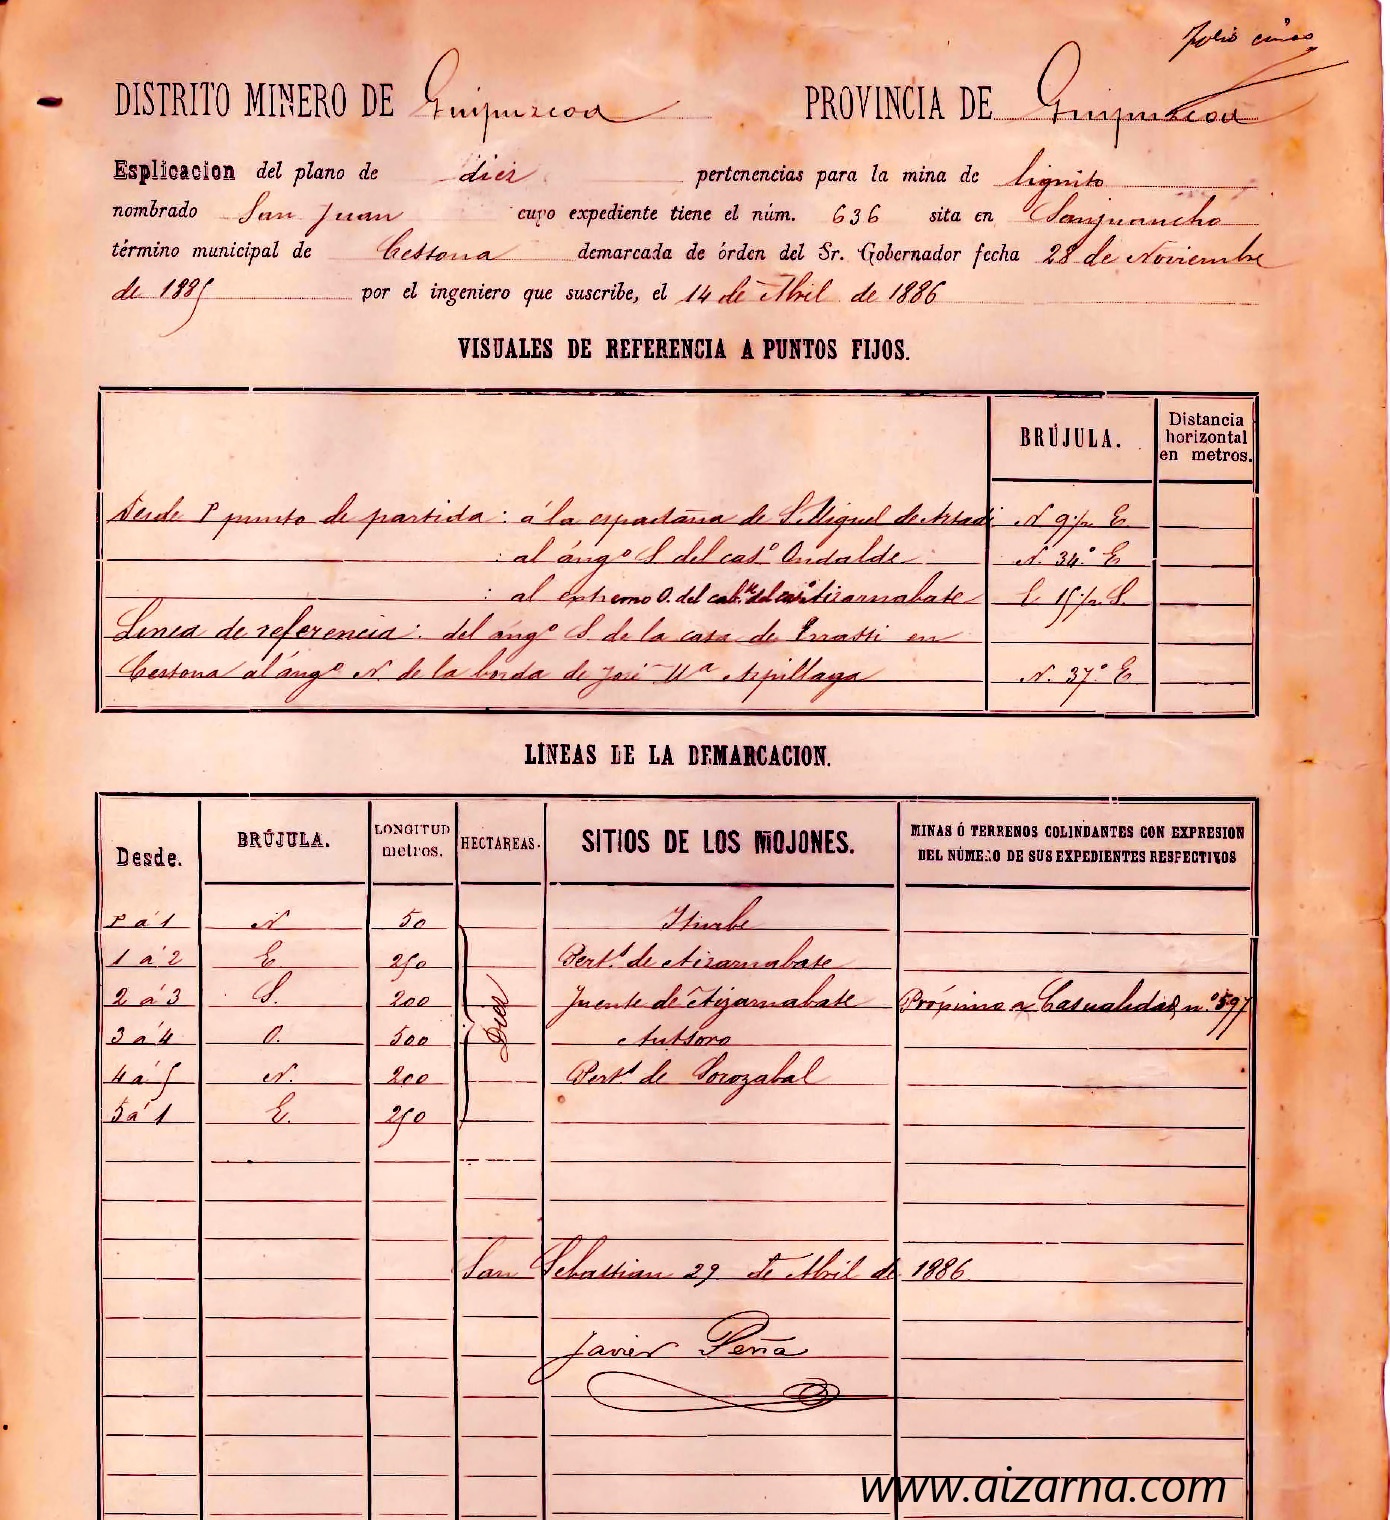 folio cinco
DISTRITO MINERO DE Guipuzcoa PROVINCIA DE Guipuzcoa
Esplicacion del plano de diez pertenencias para la mina de lignito
nombrado San Juan cuyo expediente tiene el núm. 636 sita en Sanjuancho
término municipal de Cestona demarcada de órden del Sr. Gobernador fecha 28 de Noviembre
de 1885 por el ingeniero que suscribe, el 14 de Abril de 1886
VISUALES DE REFERENCIA A PUNTOS FIJOS.
BRÚJULA. Distancia horizontal en metros.
Desde P punto de partida: á la espadaña de S. Miguel de Artadi N 9º½ E
: al áng.º S. del cas.º Ondalde N. 34.º E
: al extremo O. del cab.te del cas.º Aizarnabate E 15º½ S.
Linea de referencia: del áng.º S de la casa de Errasti en
Cestona al áng.º N. de la borda de José M.ª Azpillaga N. 37.º E
LÍNEAS DE LA DEMARCACION.
Desde. BRÚJULA. LONGITUD metros. HECTAREAS. SITIOS DE LOS MOJONES. MINAS Ó TERRENOS COLINDANTES CON EXPRESION DEL NÚMERO DE SUS EXPEDIENTES RESPECTIVOS
P á 1 N 50 Iturbe
1 á 2 E. 250 Pert.s de Aizarnabate
2 á 3 S. 200 Fuente de Aizarnabate Próximo a Casualidad, n.º 597
Diez
3 á 4 O. 500 Antsoro
4 á 5 N. 200 Pert.s de Sorozabal
5 á 1 E. 250
San Sebastian 29 de Abril de 1886
Javier Peña
www.aizarna.com